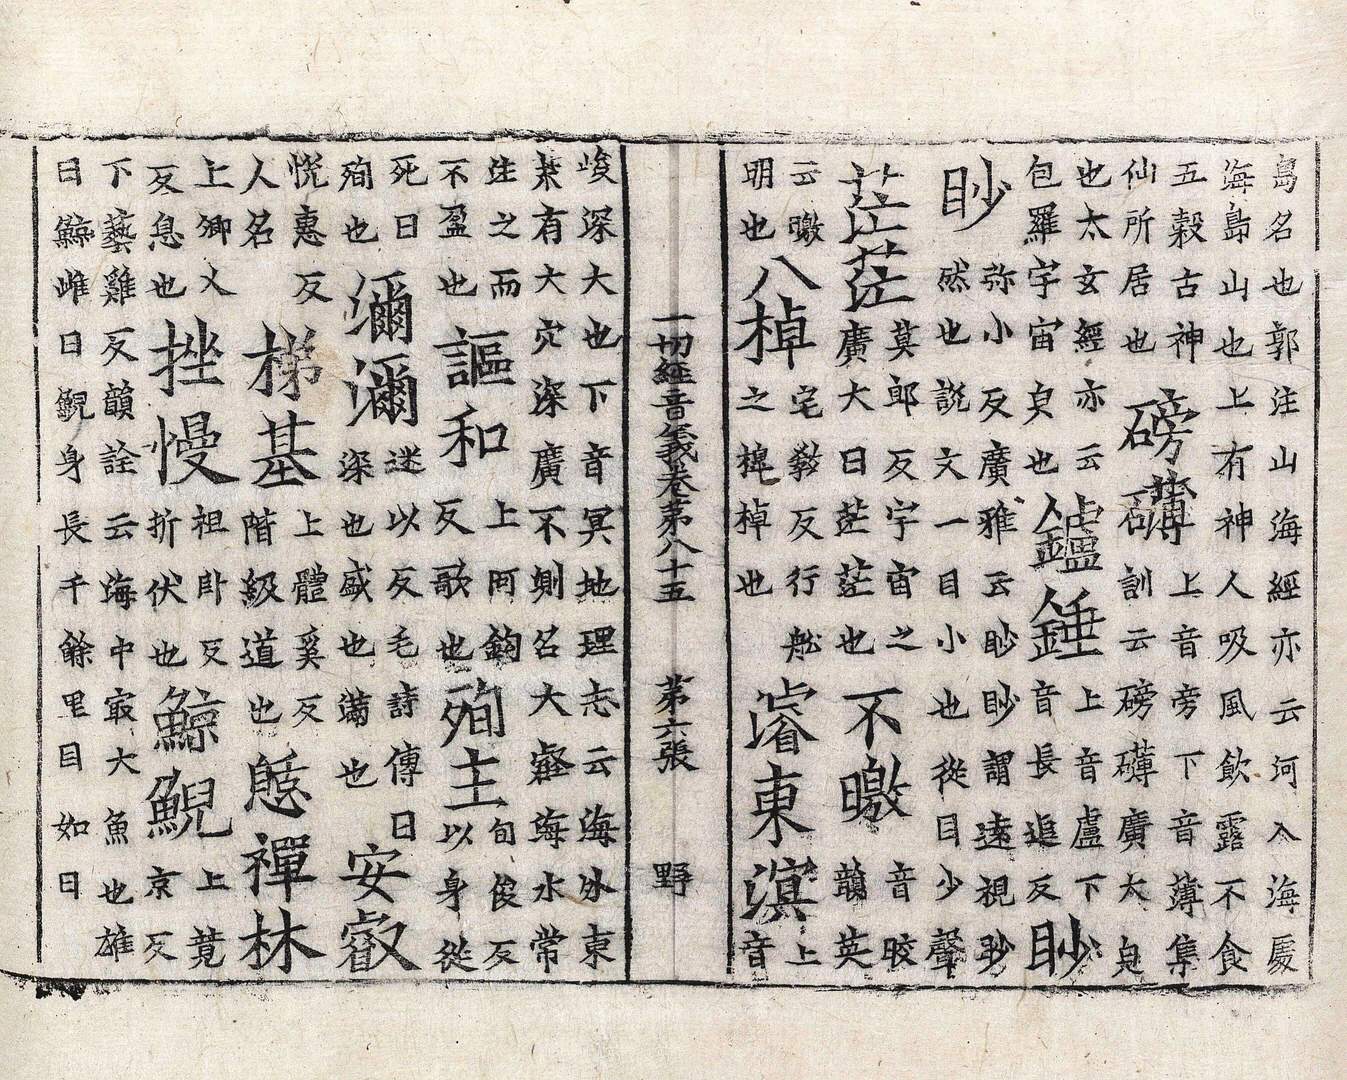 島名也郭注山海經亦云河入海處
海島山也上有神人吸風飲露不食
五穀古神
仙所居也
磅礴
上音旁下音薄集
訓云磅礴廣大皃
也太玄經亦云
包羅宇宙皃也
鑪錘
上音盧下
音長追反
眇
眇
弥小反廣雅云眇眇謂遠視眇
然也說文一目小也從目少聲
茫茫
莫郎反宇宙之
廣大曰茫茫也
不曒
音皎
韻英
云曒
明也
八棹
宅敎反行舩
之椑棹也
濬東溟
上
音
一切經音義卷第八十五 第六張 野
峻深大也下音冥地理志云海外東
萊有大穴深廣不測名大壑海水常
注之而
不盈也
謳和
上阿鉤
反歌也
殉主
旬俊反
以身從
死曰
殉也
瀰瀰
迷以反毛詩傳曰
深也盛也滿也
安叡
悅惠反
人名
梯基
上體奚反
階級道也
憩禪林
上卿乂
反息也
挫慢
祖卧反
折伏也
鯨鯢
上競
京反
下藝雞反韻詮云海中最大魚也雄
曰鯨雌曰鯢身長千餘里目如日